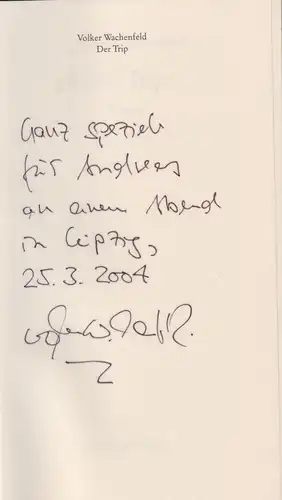 Volker Wachenfeld
Der Trip
Ganz speziell
für Andreas
an einem Abend
in Leipzig,
25.3.2004